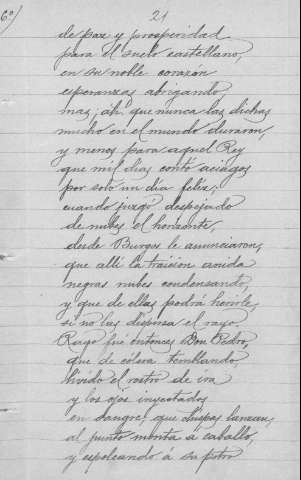 6º/ 21
de paz y prosperidad
para el suelo castellano,
en su noble corazón
esperanzas abrigando,
mas ¡áh! que nunca las dichas
mucho en el mundo duraron,
y menos para aquel Rey
que mil dias contó aciagos
por solo un dia feliz;
cuando juzgó despejado
de nubes el horizonte,
desde Burgos le anunciaron,
que alli la traicion anida
negras nubes condensando,
y que de ellas podrá herirle,
si no las dispersa el rayo.
Rayo fué entonces Don Pedro,
que de cólera temblando,
livido el rostro de ira
y los ojos inyectados
en sangre, que chispas lanzan,
al punto monta á caballo,
y espoleando á su potro